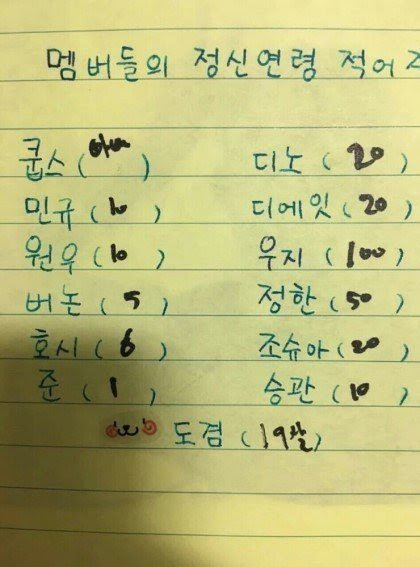 멤버들의 정신연령 적어
쿱스 ( ) 디노 (20)
민규 (10) 디에잇 (20)
원우 (10) 우지 (100)
버논 (5) 정한 (50)
호시 (6) 조슈아 (20)
준 (1) 승관 (10)
도겸 (19살)